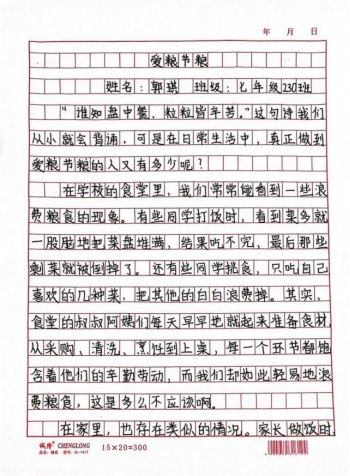 年 月 日
爱粮节粮
姓名：郭琪 班级：七年级230班
“谁知盘中餐，粒粒皆辛苦。”这句诗我们
从小就会背诵，可是在日常生活中，真正做到
爱粮节粮的人又有多少呢？
在学校的食堂里，我们常常能看到一些浪
费粮食的现象。有些同学打饭时，看到菜多就
一股脑地把菜盘堆满，结果吃不完，最后那些
剩菜就被倒掉了。还有些同学挑食，只吃自己
喜欢的几种菜，把其他的白白浪费掉。其实，
食堂的叔叔阿姨们每天早早地就起来准备食材，
从采购、清洗、烹饪到上桌，每一个环节都饱
含着他们的辛勤劳动，而我们却如此轻易地浪
费粮食，这是多么不应该啊。
在家里，也存在类似的情况。家长做饭时，
CHENGLONG 15×20=300